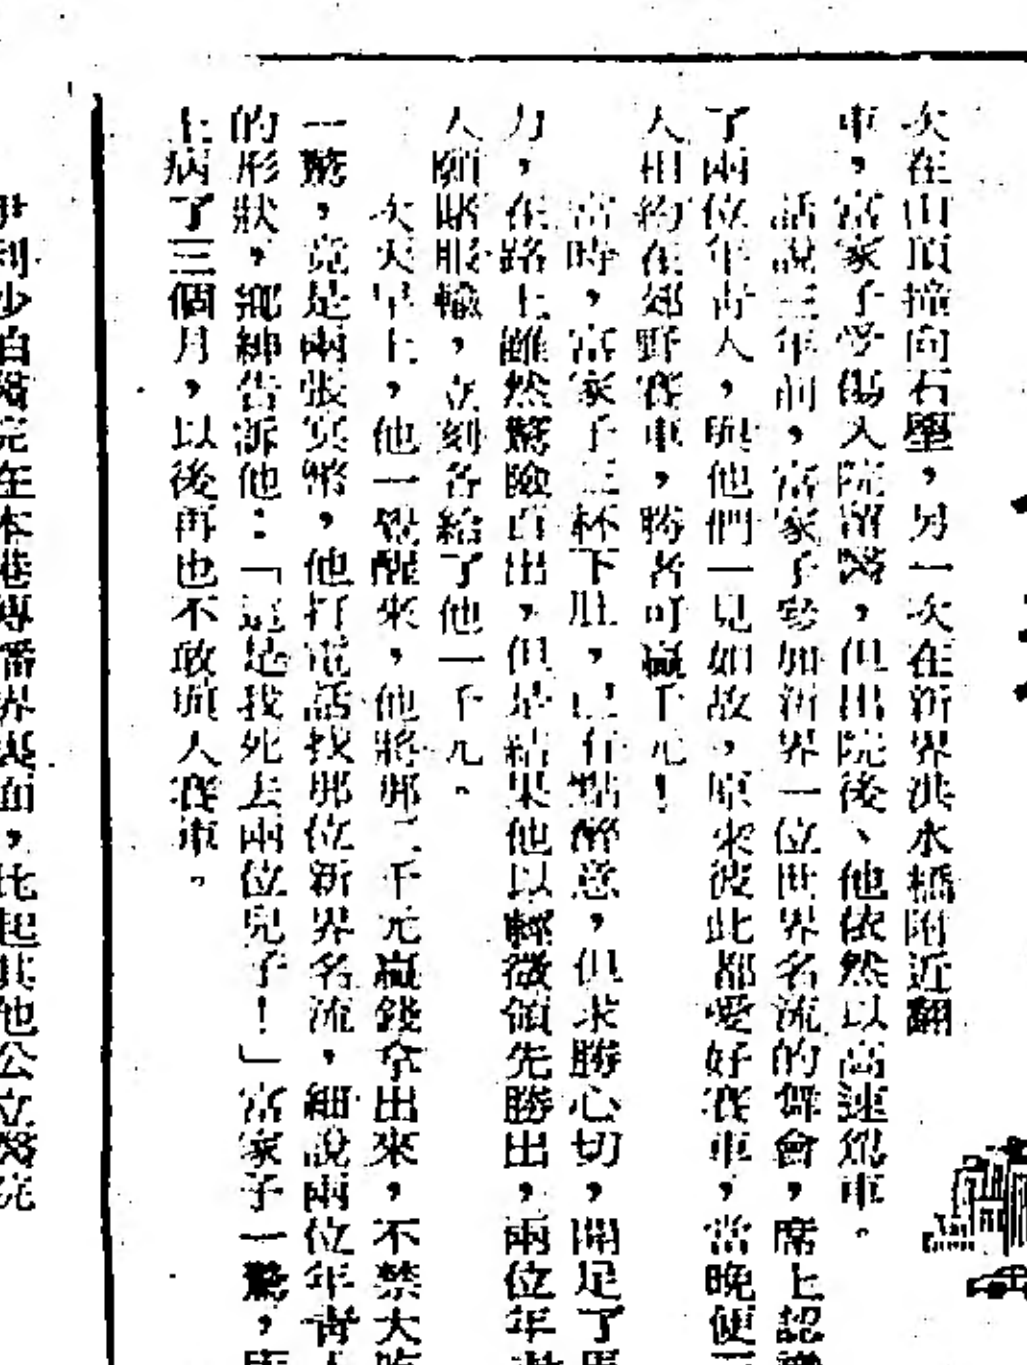 次在山頂撞向石壆，另一次在新界洪水橋附近翻
車，富家子受傷入院留醫，但出院後、他依然以高速駕車。
話說三年前，富家子參加新界一位世界名流的舞會，席上認識
了兩位年青人，與他們一見如故，原來彼此都愛好賽車，當晚便
人相約在郊野賽車，勝者可贏千元！
當時，富家子三杯下肚，已有點醉意，但求勝心切，開足了馬
力，在路上雖然驚險百出，但是結果他以輕微領先勝出，兩位年
人願賭服輸，立刻各給了他一千元。
次天早上，他一覺醒來，他將那二千元贏錢拿出來，不禁大吃
一驚，竟是兩張冥幣，他打電話找那位新界名流，細說兩位年青人
的形狀，鄉紳告訴他：「這是我死去兩位兒子！」富家子一驚，
上病了三個月，以後再也不敢與人賽車。
尹利沙伯醫院在本港專番界裏面，比起其他公立醫院